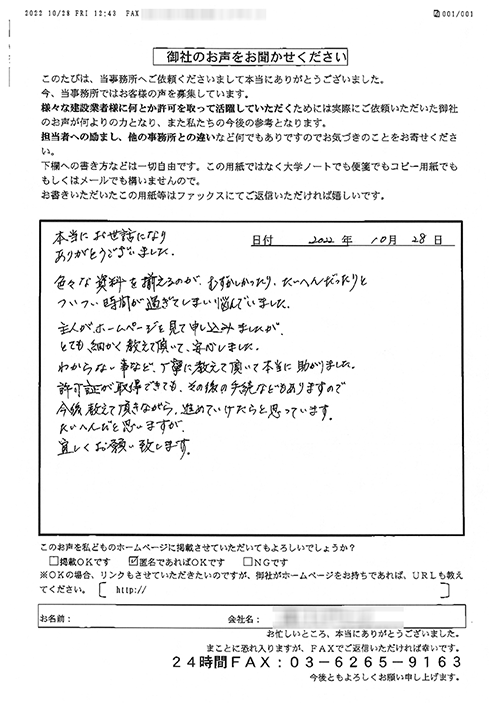 2022 10/28 FRI 12:43 FAX
001/001
御社のお声をお聞かせください
このたびは、当事務所へご依頼くださいまして本当にありがとうございました。
今、当事務所ではお客様の声を募集しています。
様々な建設業者様に何とか許可を取って活躍していただくためには実際にご依頼いただいた御社
のお声が何よりの力となり、また私たちの今後の参考となります。
担当者への励まし、他の事務所との違いなど何でもありですのでお気づきのことをお寄せくださ
い。
下欄への書き方などは一切自由です。この用紙ではなく大学ノートでも便箋でもコピー用紙でも
もしくはメールでも構いませんので。
お書きいただいたこの用紙等はファックスにてご返信いただければ嬉しいです。
日付 2022 年 10月 28 日
本当にお世話になり
ありがとうございました。
色々な資料を揃えるのが、むずかしかったり、たいへんだったりと
ついつい時間が過ぎてしまい悩んでいました。
主人がホームページを見て申し込みましたが、
とても、細かく教えて頂いて、安心しました。
わからない事など、丁寧に教えて頂いて本当に助かりました。
許可証が取得できても、その後の手続などもありますので
今後教えて頂きながら、進めていけたらと思っています。
たいへんだと思いますが、
宜しくお願い致します。
このお声を私どものホームページに掲載させていただいてもよろしいでしょうか?
□掲載OKです ☑匿名であればOKです □NGです
※OKの場合、リンクもさせていただきたいのですが、御社がホームページをお持ちであれば、URLも教え
てください。〔 http:// 〕
お名前: 会社名:
お忙しいところ、本当にありがとうございました。
まことに恐れ入りますが、FAXでご返信いただければ幸いです。
24時間FAX:03-6265-9163
今後ともよろしくお願い申し上げます。